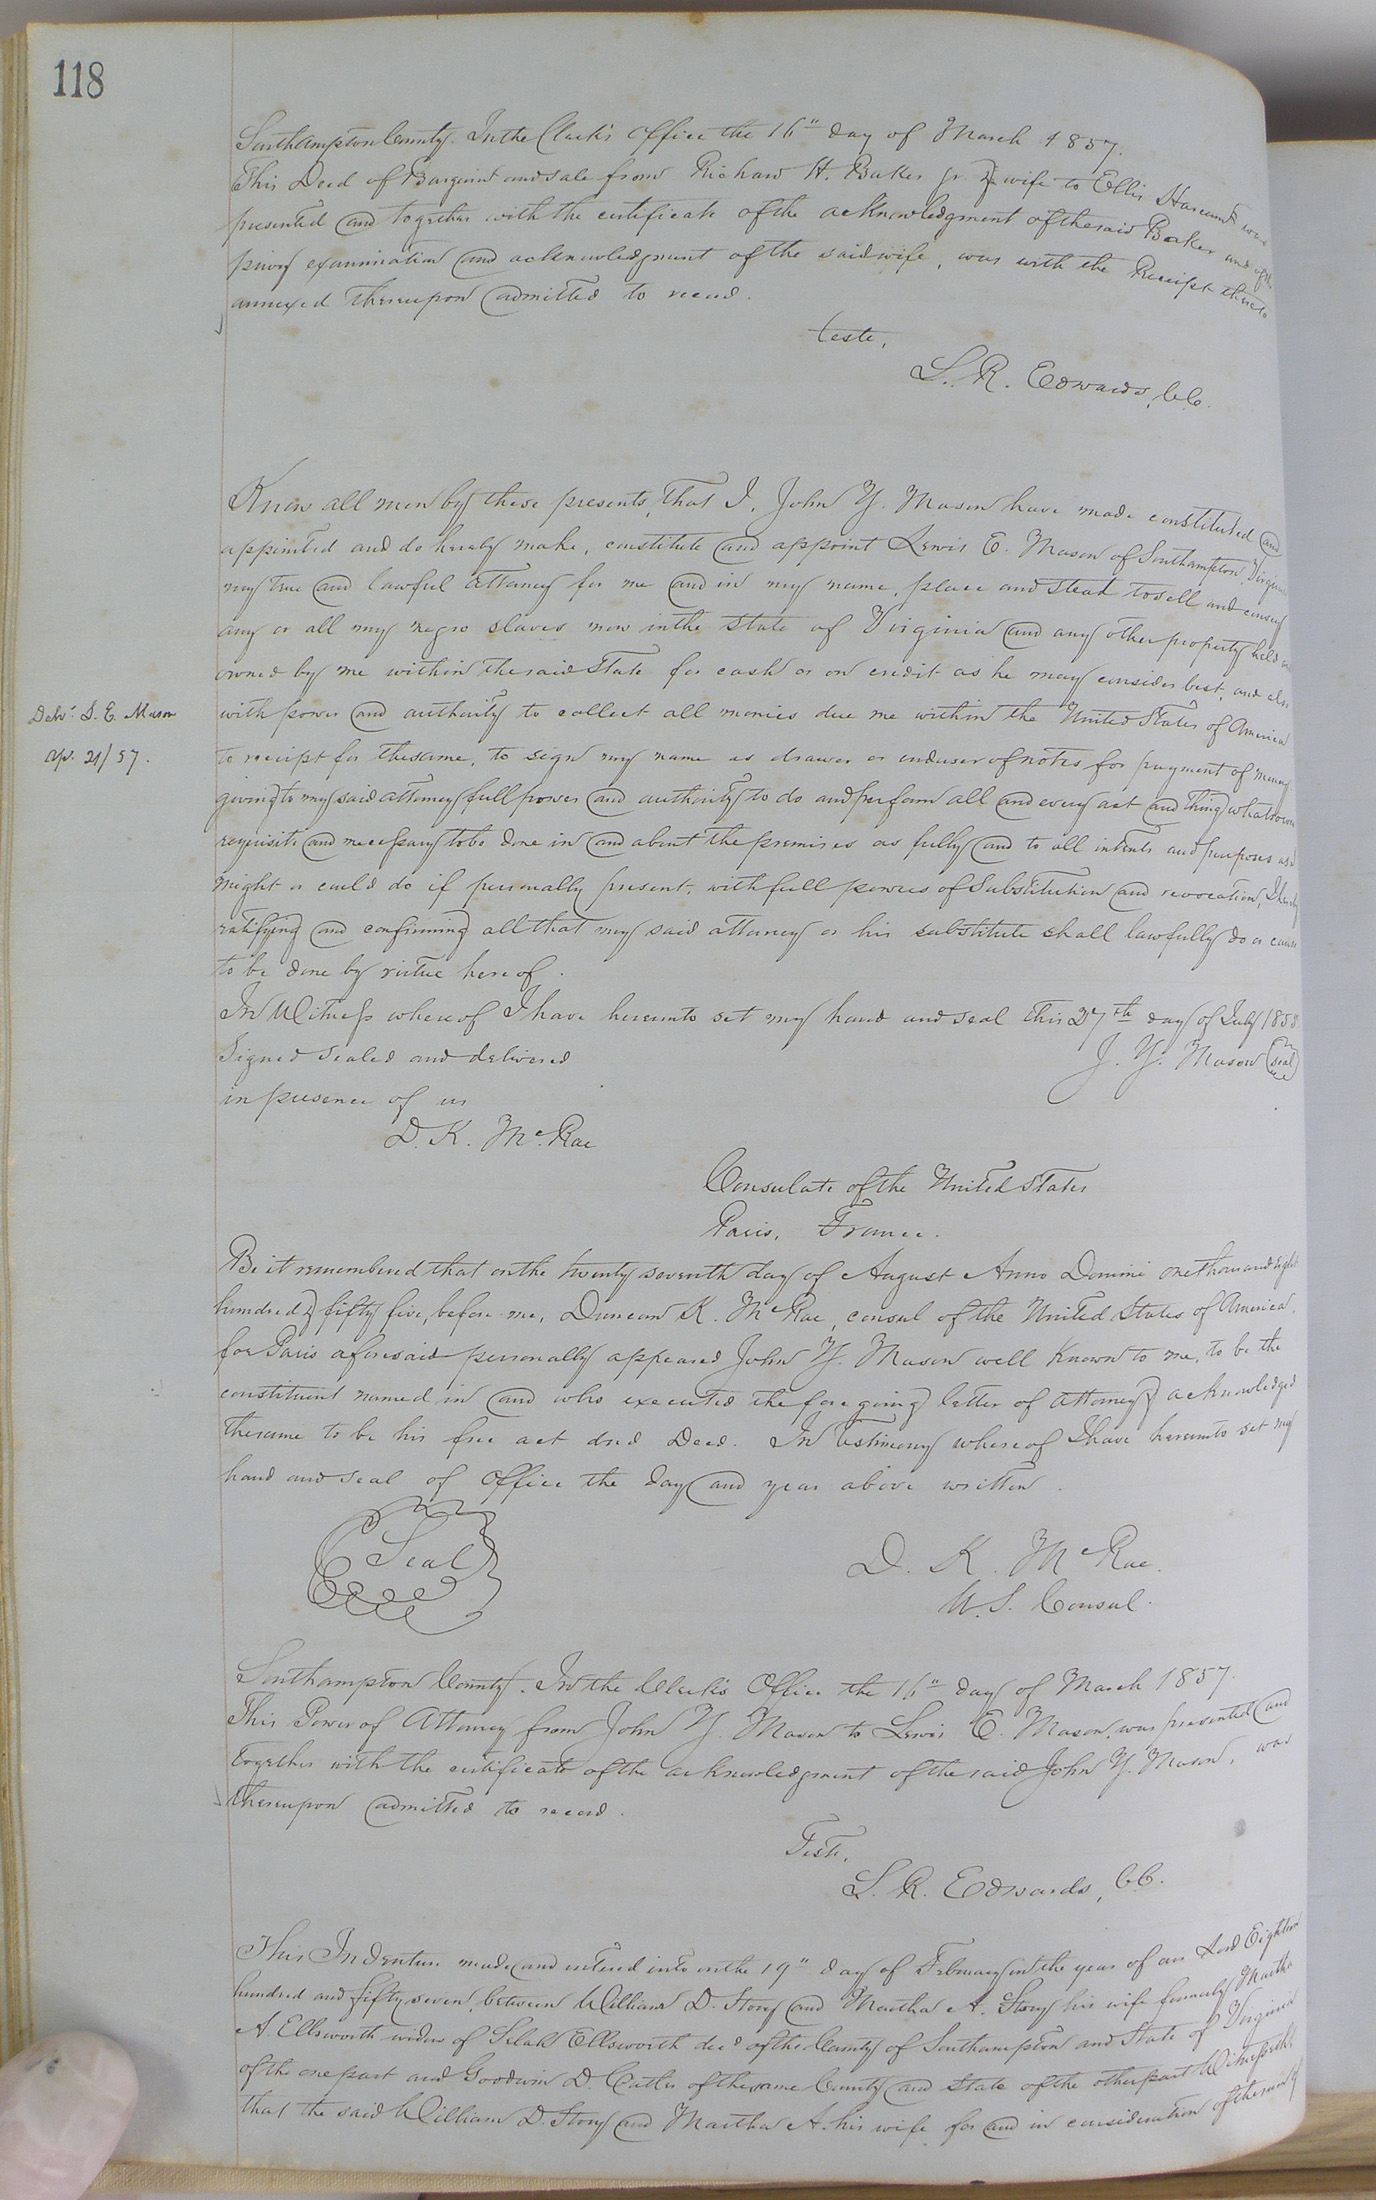 118
Southampton County. In the Clerk's Office the 16" day of March 1857.
This Deed of Bargain and sale from Richard H. Baker jr. & wife to Ellis was
presented and together with the certificate of the acknowledgment of the said Baker and of the
privy examination and acknowledgment of the said wife, was with the Receipt thereto
annexed thereupon admitted to record.
teste,
L. R. Edwards, C.C.
Know all men by these presents, that I, John Y. Mason have made constituted and
appointed and do hereby make, constitute and appoint Lewis E. Mason of Southampton, Virginia
my true and lawful attorney for me and in my name, place and stead to sell and convey
any or all my negro slaves now in the State of Virginia and any other property held or
owned by me within the said State for cash or on credit as he may consider best, and also
with power and authority to collect all monies due me within the United States of America
Delv.d L. E. Mason
Ap. 21/57.
to receipt for the same, to sign my name as drawer or endorser of notes for payment of money
giving to my said attorney full power and authority to do and perform all and every act and thing whatsoever
requisite and necessary to be done in and about the premises as fully and to all intents and purposes as I
might or could do if personally present, with full powers of Substitution and revocation, I hereby
ratifying and confirming all that my said attorney or his substitute shall lawfully do or cause
to be done by virtue hereof.
In Witness whereof I have hereunto set my hand and seal this 27th day of July 185
Signed sealed and delivered
J. Y. Mason (seal)
in presence of us
D. K. McRae
Consulate of the United States
Paris, France.
Be it remembered that on the twenty seventh day of August Anno Domini one thousand eight
hundred & fifty five, before me, Duncan K. McRae, consul of the United States of America,
for Paris aforesaid personally appeared John Y. Mason well known to me, to be the
constituent named in and who executed the foregoing letter of attorney & acknowledged
the same to be his free act and Deed. In testimony whereof I have hereunto set my
hand and seal of Office the day and year above written.
Seal
D. K. McRae.
U.S. Consul.
Southampton County. In the Clerk's Office the 16" day of March 1857.
This Power of Attorney from John Y. Mason to Lewis E. Mason, was presented and
together with the certificate of the acknowledgment of the said John Y. Mason, was
thereupon admitted to record.
Teste,
L. R. Edwards, C.C.
This Indenture made and entered into on the 19" day of February in the year of our Lord Eighteen
hundred and fifty seven, between William D. Story and Martha A. Story his wife formerly Martha
A. Ellsworth widow of Selah Ellsworth dec'd of the County of Southampton and State of Virginia
of the one part and Goodwin D. Cutler of the same County and State of the other part Witnesseth,
that the said William D. Story and Martha A. his wife for and in consideration of the sum of